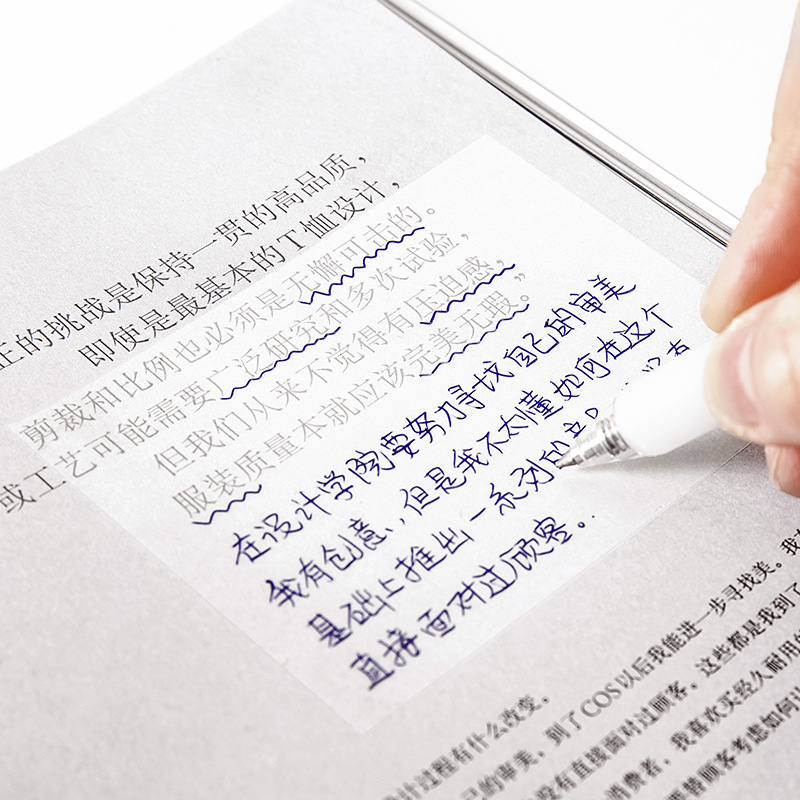 正的挑战是保持一贯的高品质，
即使是最基本的T恤设计，
剪裁和比例也必须是无懈可击的。
或工艺可能需要广泛研究和多次试验，
但我们从来不觉得有压迫感，
服装质量本就应该完美无瑕。
在设计学院要努力寻找自己的审美
我有创意，但是我不太懂如何在这个
基础上推出一系列
直接面对过顾客。
计过程有什么改变。
己的审美，到了COS以后我能进一步寻找美。我
没有直接面对过顾客，这些都是我到了
消费者，我喜欢买经久耐用
顾客考虑如何